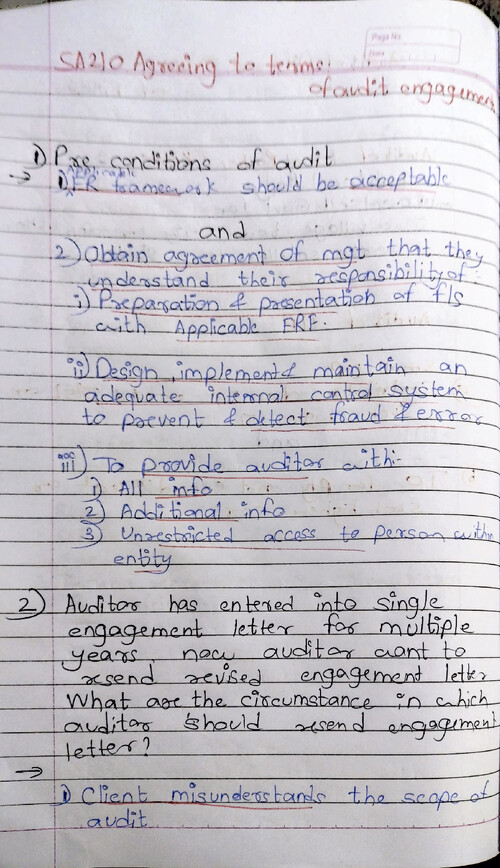 Page No
Date
SA210 Agreeing to terms
of audit engagement
1) Pre conditions of audit
→ Applicable
1) FR framework should be acceptable
and
2) Obtain agreement of mgt that they
understand their responsibility of
i) Preparation & presentation of f/s
with Applicable FRF.
ii) Design, implement & maintain an
adequate internal control system
to prevent & detect fraud & error
iii) To provide auditor with:-
1) All info
2) Additional info
3) Unrestricted access to person within
entity
2) Auditor has entered into single
engagement letter for multiple
years, now auditor want to
resend revised engagement letter
What are the circumstance in which
auditor should resend engagement
letter?
→
1) Client misunderstands the scope of
audit